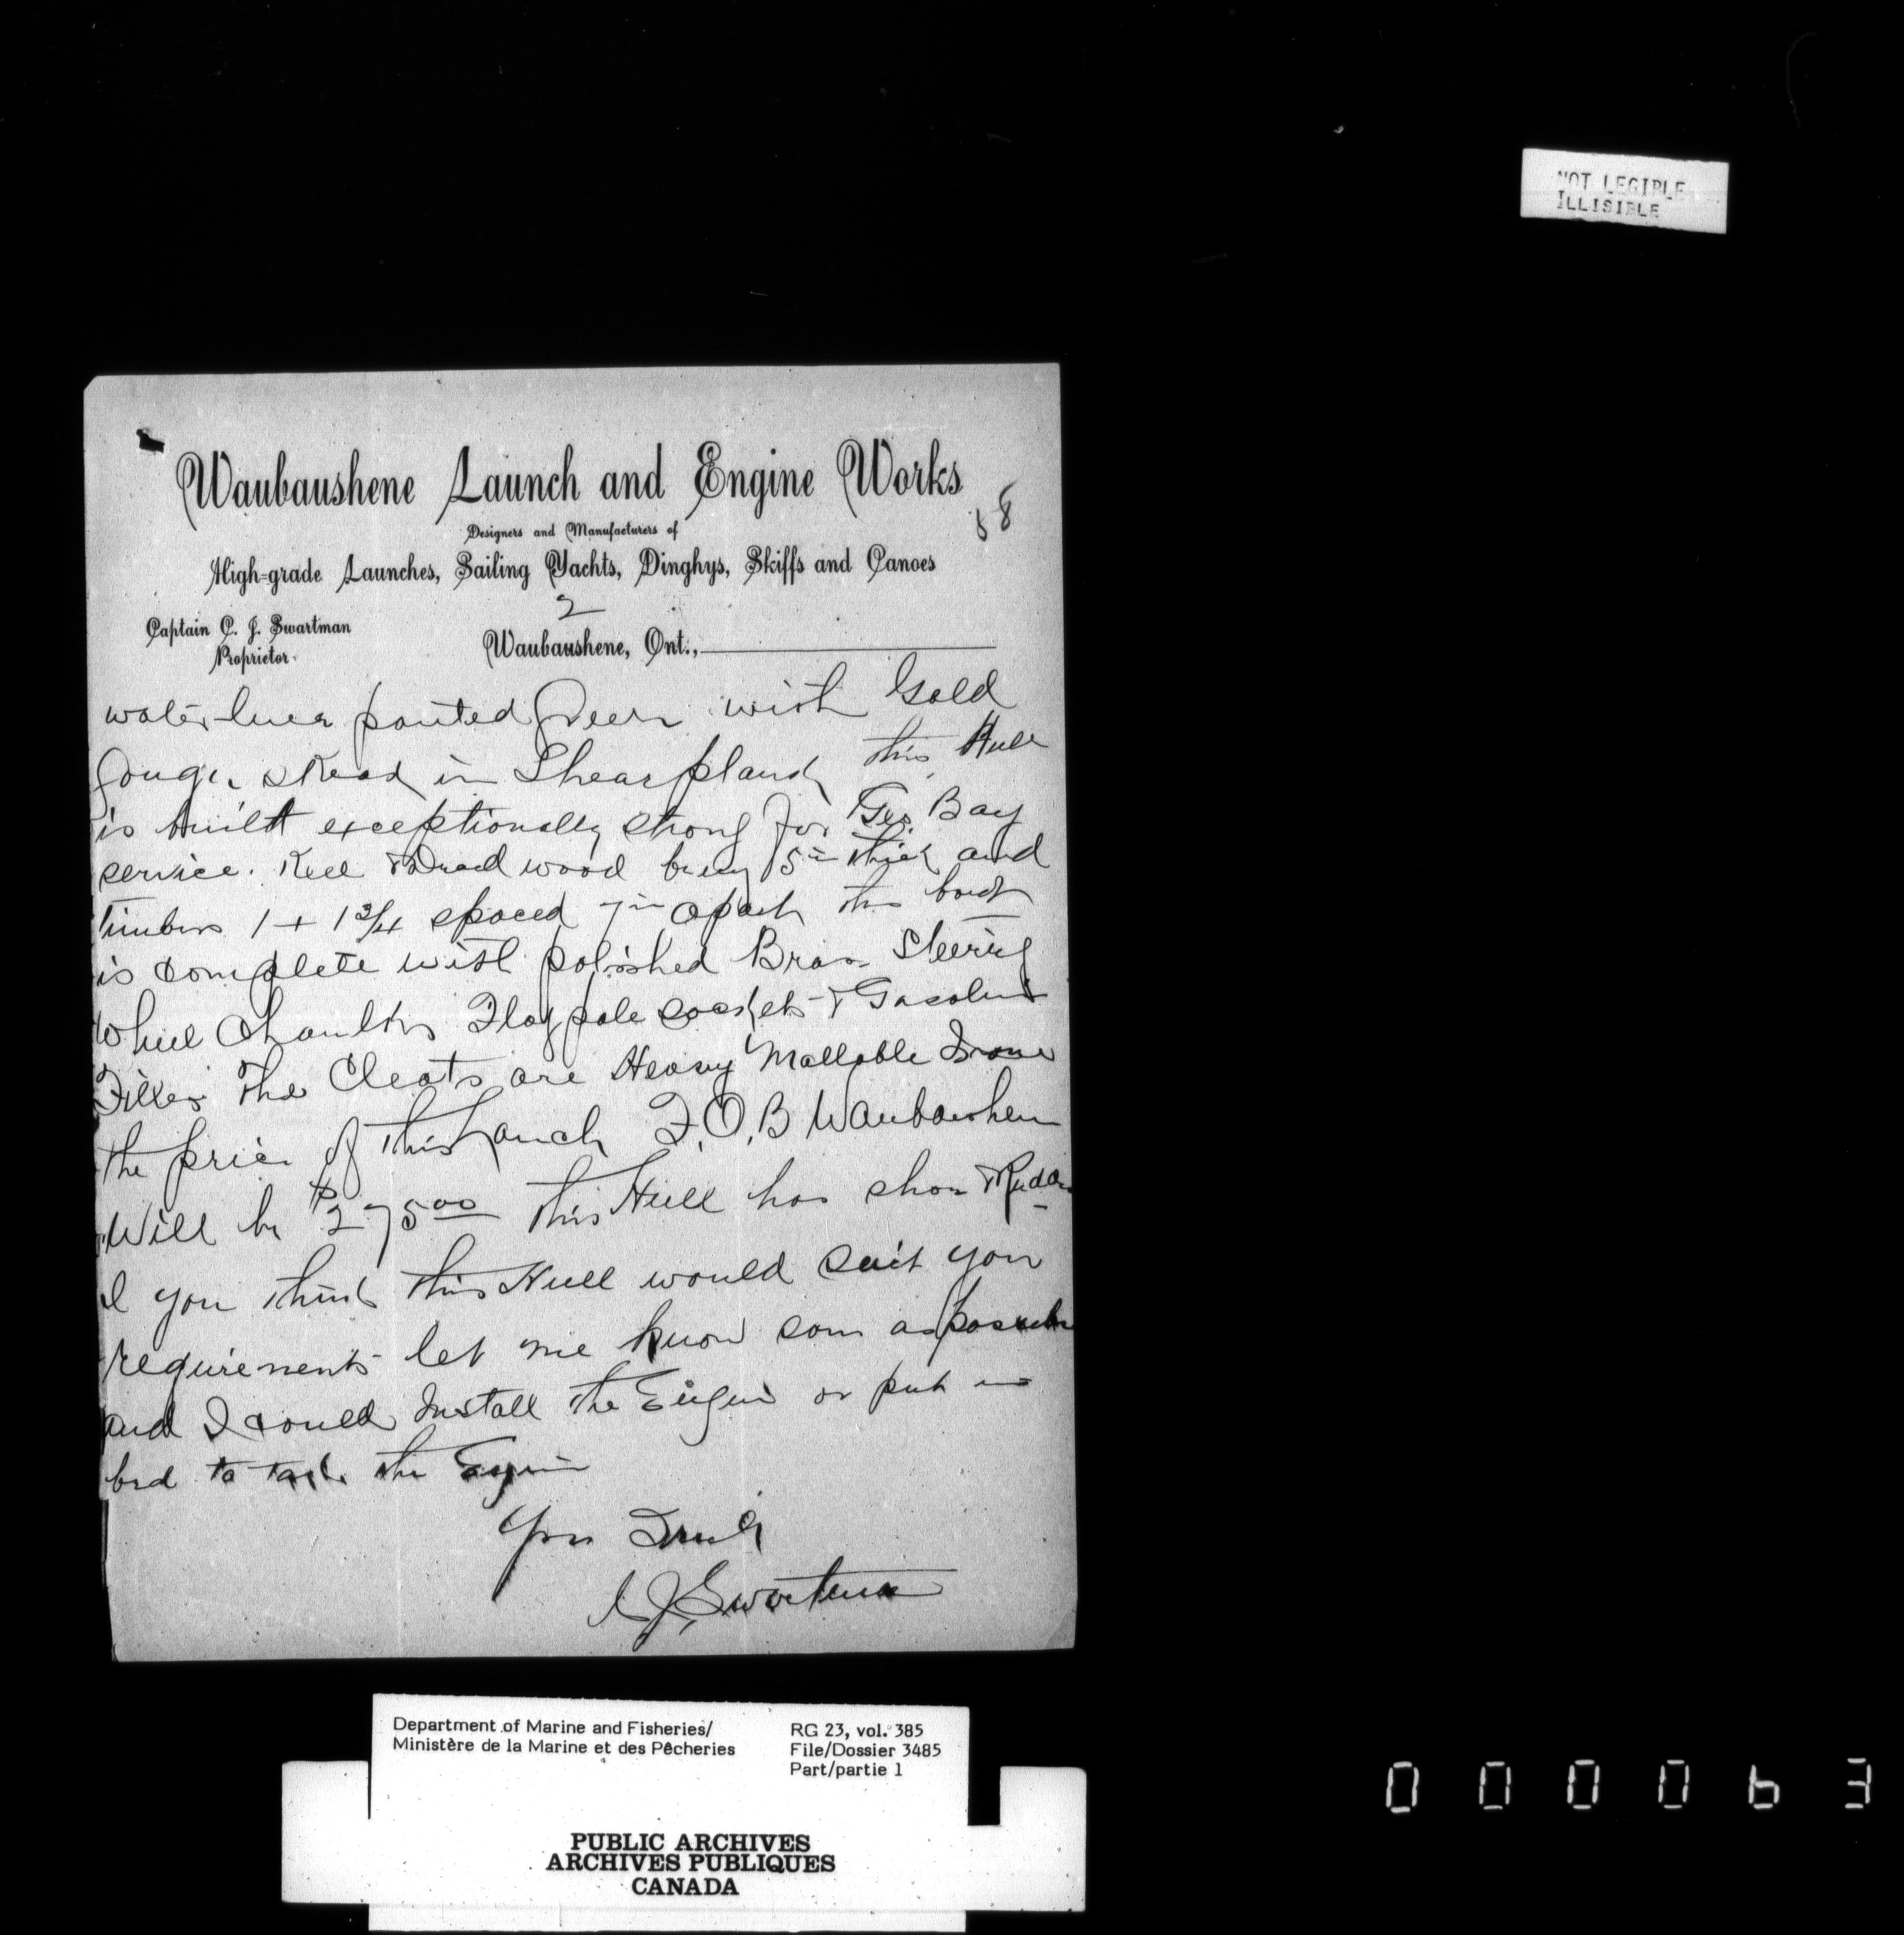 NOT LEGIBLE
ILLISIBLE
Waubaushene Launch and Engine Works
58
Designers and Manufacturers of
High=grade Launches, Sailing Yachts, Dinghys, Skiffs and Canoes
2
Captain C. J. Swartman
Proprietor
Waubaushene, Ont.,
water line painted Green with Gold
in Shear plank this Hull
is built exceptionally strong for Geo. Bay
service. Keel & Dead wood being 5in thick and
Timbers 1 + 1 3/4 spaced 7in apart this boat
is complete with polished Brass Steering
Wheel Flag pole sockets & Gasoline
Filler The Cleats are Heavy Mallable Iron
the price of this Launch F.O.B Waubaushene
Will be $275 00 this Hull has shoe & Rudder
I you think this Hull would suit your
requirements let me know soon as possible
and I could Install the Engine or put in
bed to take the Engine
Yours Truly
C J Swartman
Department of Marine and Fisheries/
Ministère de la Marine et des Pêcheries
RG 23, vol. 385
File/Dossier 3485
Part/partie 1
PUBLIC ARCHIVES
ARCHIVES PUBLIQUES
CANADA
000063